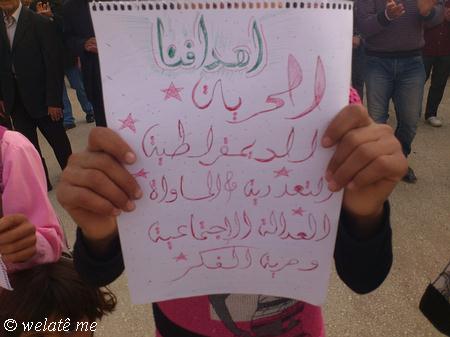 اهدافنا
الحرية
الديمقراطية
التعددية & المساواة
العدالة الاجتماعية
وحرية الفكر
© welatê me